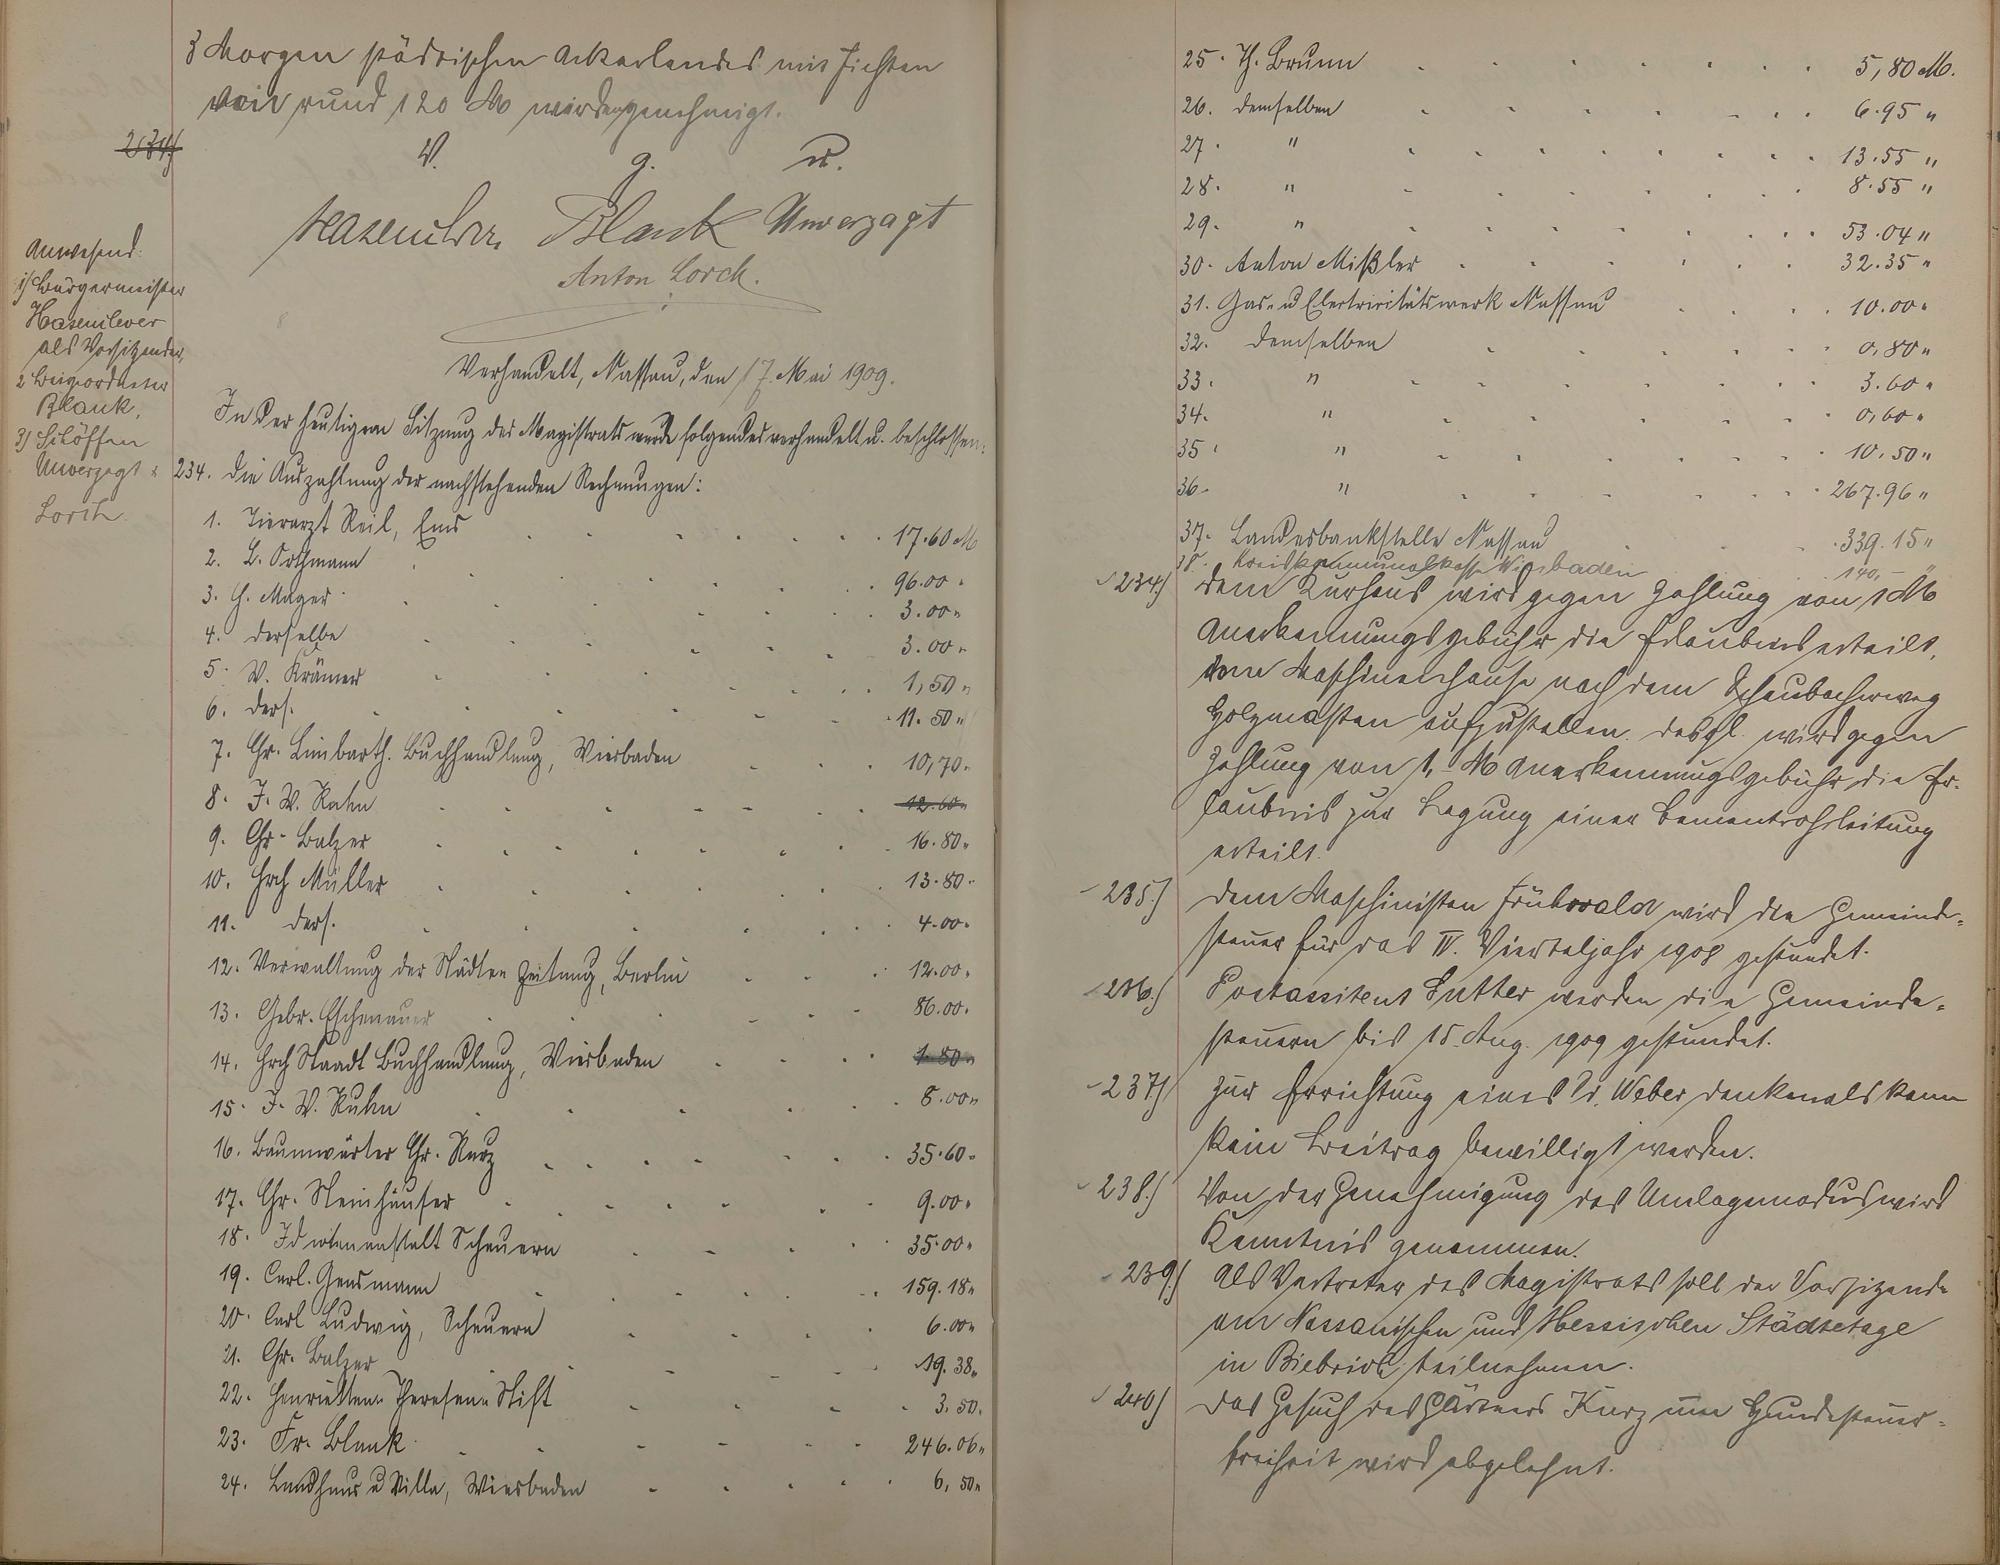 3 Morgen städtischen Ackerlandes mit Fichten
rund 120 M wird genehmigt.
234)
V. g. u.
Hasenclever Blank Unverzagt
Anton Lorch.
Anwesend:
1) Bürgermeister
Hasenclever
als Vorsitzender,
2 Beigeordneter
Blank,
3) Schöffen
Unverzagt &
Lorch.
Verhandelt, Nassau, den 17. Mai 1909.
In der heutigen Sitzung des Magistrats wurde folgendes verhandelt u. beschlossen:
234. Die Auszahlung der nachstehenden Rechnungen:
1. Tierarzt Reil, Ems 17.60 M
2. L. Orthmann 96.00 "
3. H. Mager 3.00 "
4. derselbe 3.00 "
5. W. Krämer 1,50 "
6. ders. 11.50 "
7. Chr. Limbarth. Buchhandlung, Wiesbaden 10,70 "
8. J. W. Kuhn 12.60 "
9. Chr. Balzer 16.80 "
10. Hrch Müller 13.80 "
11. ders. 4.00 "
12. Verwaltung der Städte Zeitung, Berlin 12.00 "
13. Gebr. Eschenauer 86.00 "
14. Hrch Staadt Buchhandlung, Wiesbaden 1.80 "
15. J. W. Kuhn 8.00 "
16. Baumwärter Chr. Kurz 35.60 "
17. Chr. Steinhäuser 9.00 "
18. Idiotenanstalt Scheuern 35.00 "
19. Carl. Gensmann 159.18 "
20. Carl Ludwig, Scheuern 6.00 "
21. Chr. Balzer 19.38 "
22. Henrietten-Theresen-Stift 3.50 "
23. Fr. Blank 246.06 "
24. Landhaus u Villa, Wiesbaden 6,50 "
25. Th. Brunn 5,80 M.
26. demselben 6.95 "
27. " 13.55 "
28. " 8.55 "
29. " 53.04 "
30. Anton Mißler 32.35 "
31. Gas- u Electricitätswerk Nassau 10.00 "
32. demselben 0,80 "
33. " 3.60 "
34. " 0,60 "
35. " 10,50 "
36. " 267.96 "
37. Landesbankstelle Nassau 339.15 "
38. Kreiskommunalkasse Wiesbaden 140,- "
234) Dem Kurhaus wird gegen Zahlung von 1 M
Anerkennungsgebühr die Erlaubnis erteilt,
vom Maschinenhause nach dem Scheubacherweg
Holzmasten aufzustellen. Desgl. wird gegen
Zahlung von 1,- M Anerkennungsgebühr die Er-
laubnis zur Legung einer Cementrohrleitung
erteilt.
235.) Dem Maschinisten Frühwald wird die Gemeinde-
steuer für das IV. Vierteljahr 1908 gestundet.
236.) Postassistent Sutter werden die Gemeinde-
steuern bis 15. Aug. 1909 gestundet.
237) Zur Errichtung eines Dr. Weber Denkmals kann
kein Beitrag bewilligt werden.
238.) Von der Genehmigung des Umlagemodus wird
Kenntnis genommen.
239.) Als Vertreter des Magistrats soll der Vorsitzende
am Nassauischen und Hessischen Städtetage
in Biebrich teilnehmen.
240) Das Gesuch des Gärtners Kurz um Hundesteuer-
freiheit wird abgelehnt.